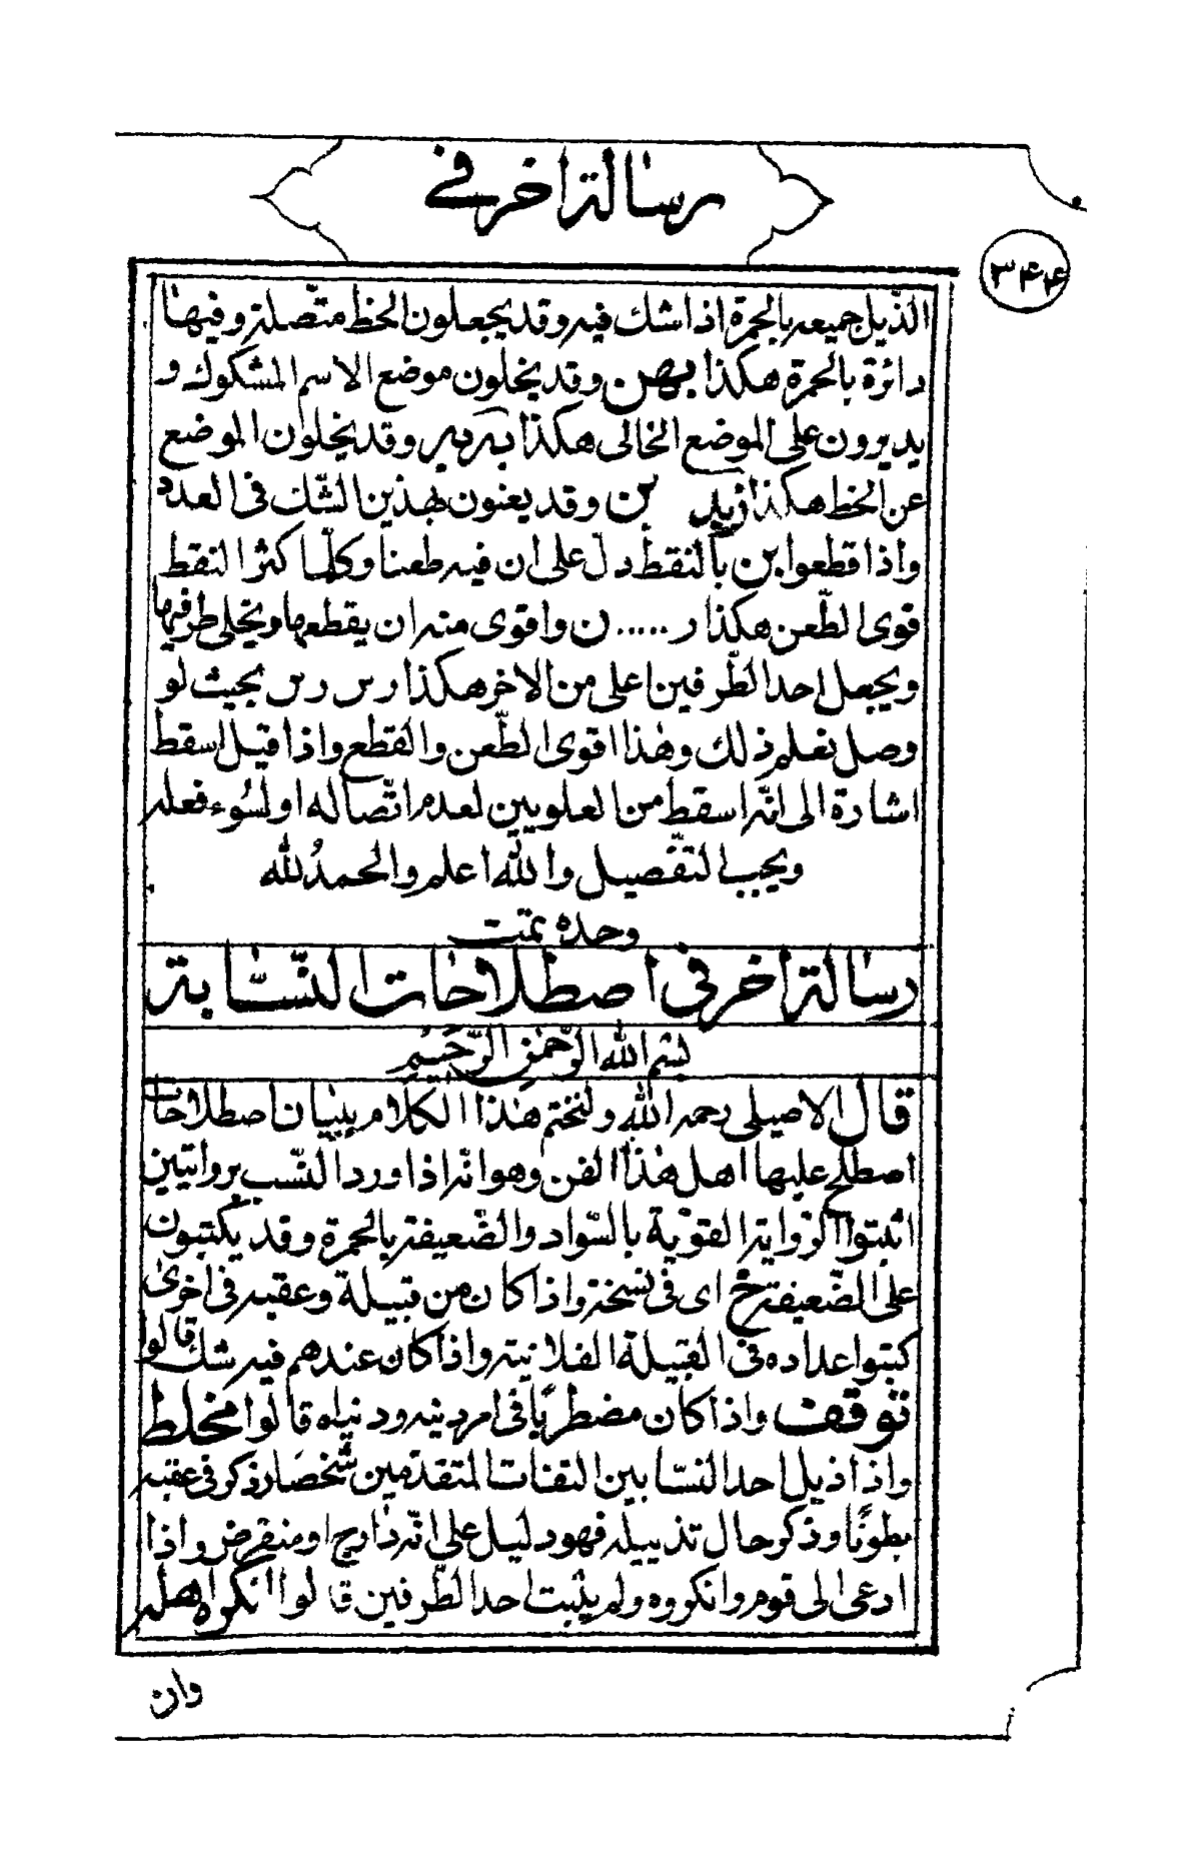 رسالة اخر في
۳۴۴
الذّيل جميعه بالحمرة اذا شك فيه وقد يجعلون الخط متّصلة وفيها
دائرة بالحمرة هكذا بهن وقد يخلون موضع الاسم المشكوك و
يديرون على الموضع الخالى هكذا وقد يخلون الموضع
عن الخط هكذا زيد بن وقد يعنون بهذين الشّك فى العدد
واذا قطعوا بن بالنقط دلّ على ان فيه طعنا وكلّما كثر النقط
قوى الطّعن هكذا ر ..... ن واقوى منه ان يقطعها ويخلى طرفيها
ويجعل احد الطّرفين اعلى من الاخر هكذا رس رس بحيث لو
وصل نعلم ذلك وهذا اقوى الطّعن والقطع واذا قيل اسقط
اشارة الى انّه اسقط من العلويين لعدم اتّصاله او لسُوء فعله
ويجب التفّصيل والله اعلم والحمدُ لله
وحده تمّت
رسالة اخر فى اصطلاحات النّسّابة
بسْم الله الرّحمٰن الرّحَيمِ
قال الاصيلى رحمه الله ولنختم هذا الكلام ببيان اصطلاحات
اصطلح عليها اهل هذا الفن وهو انّه اذا ورد النّسب بروايتين
اثبتوا الرّواية القويّة بالسّواد والضّعيفة بالحمرة وقد يكتبون
على الضّعيفة خ اى فى نسخة واذا كان من قبيلة وعقبه فى اخرى
كتبوا عداده فى القبيلة الفلانية واذا كان عندهم فيه شك قالوا
توقف واذا كان مضطربًا فى امر دينه ودنياه قالوا مخلط
واذا ذيل احد النسّابين الثقات المتقدّمين شخصا وذكر فى عقبه
بطونًا وذكر حال تذييله فهو دليل على انّه دارج او منقرض واذا
ادعى الى قوم وانكروه ولم يثبت احد الطّرفين قالوا انكره اهله
وان